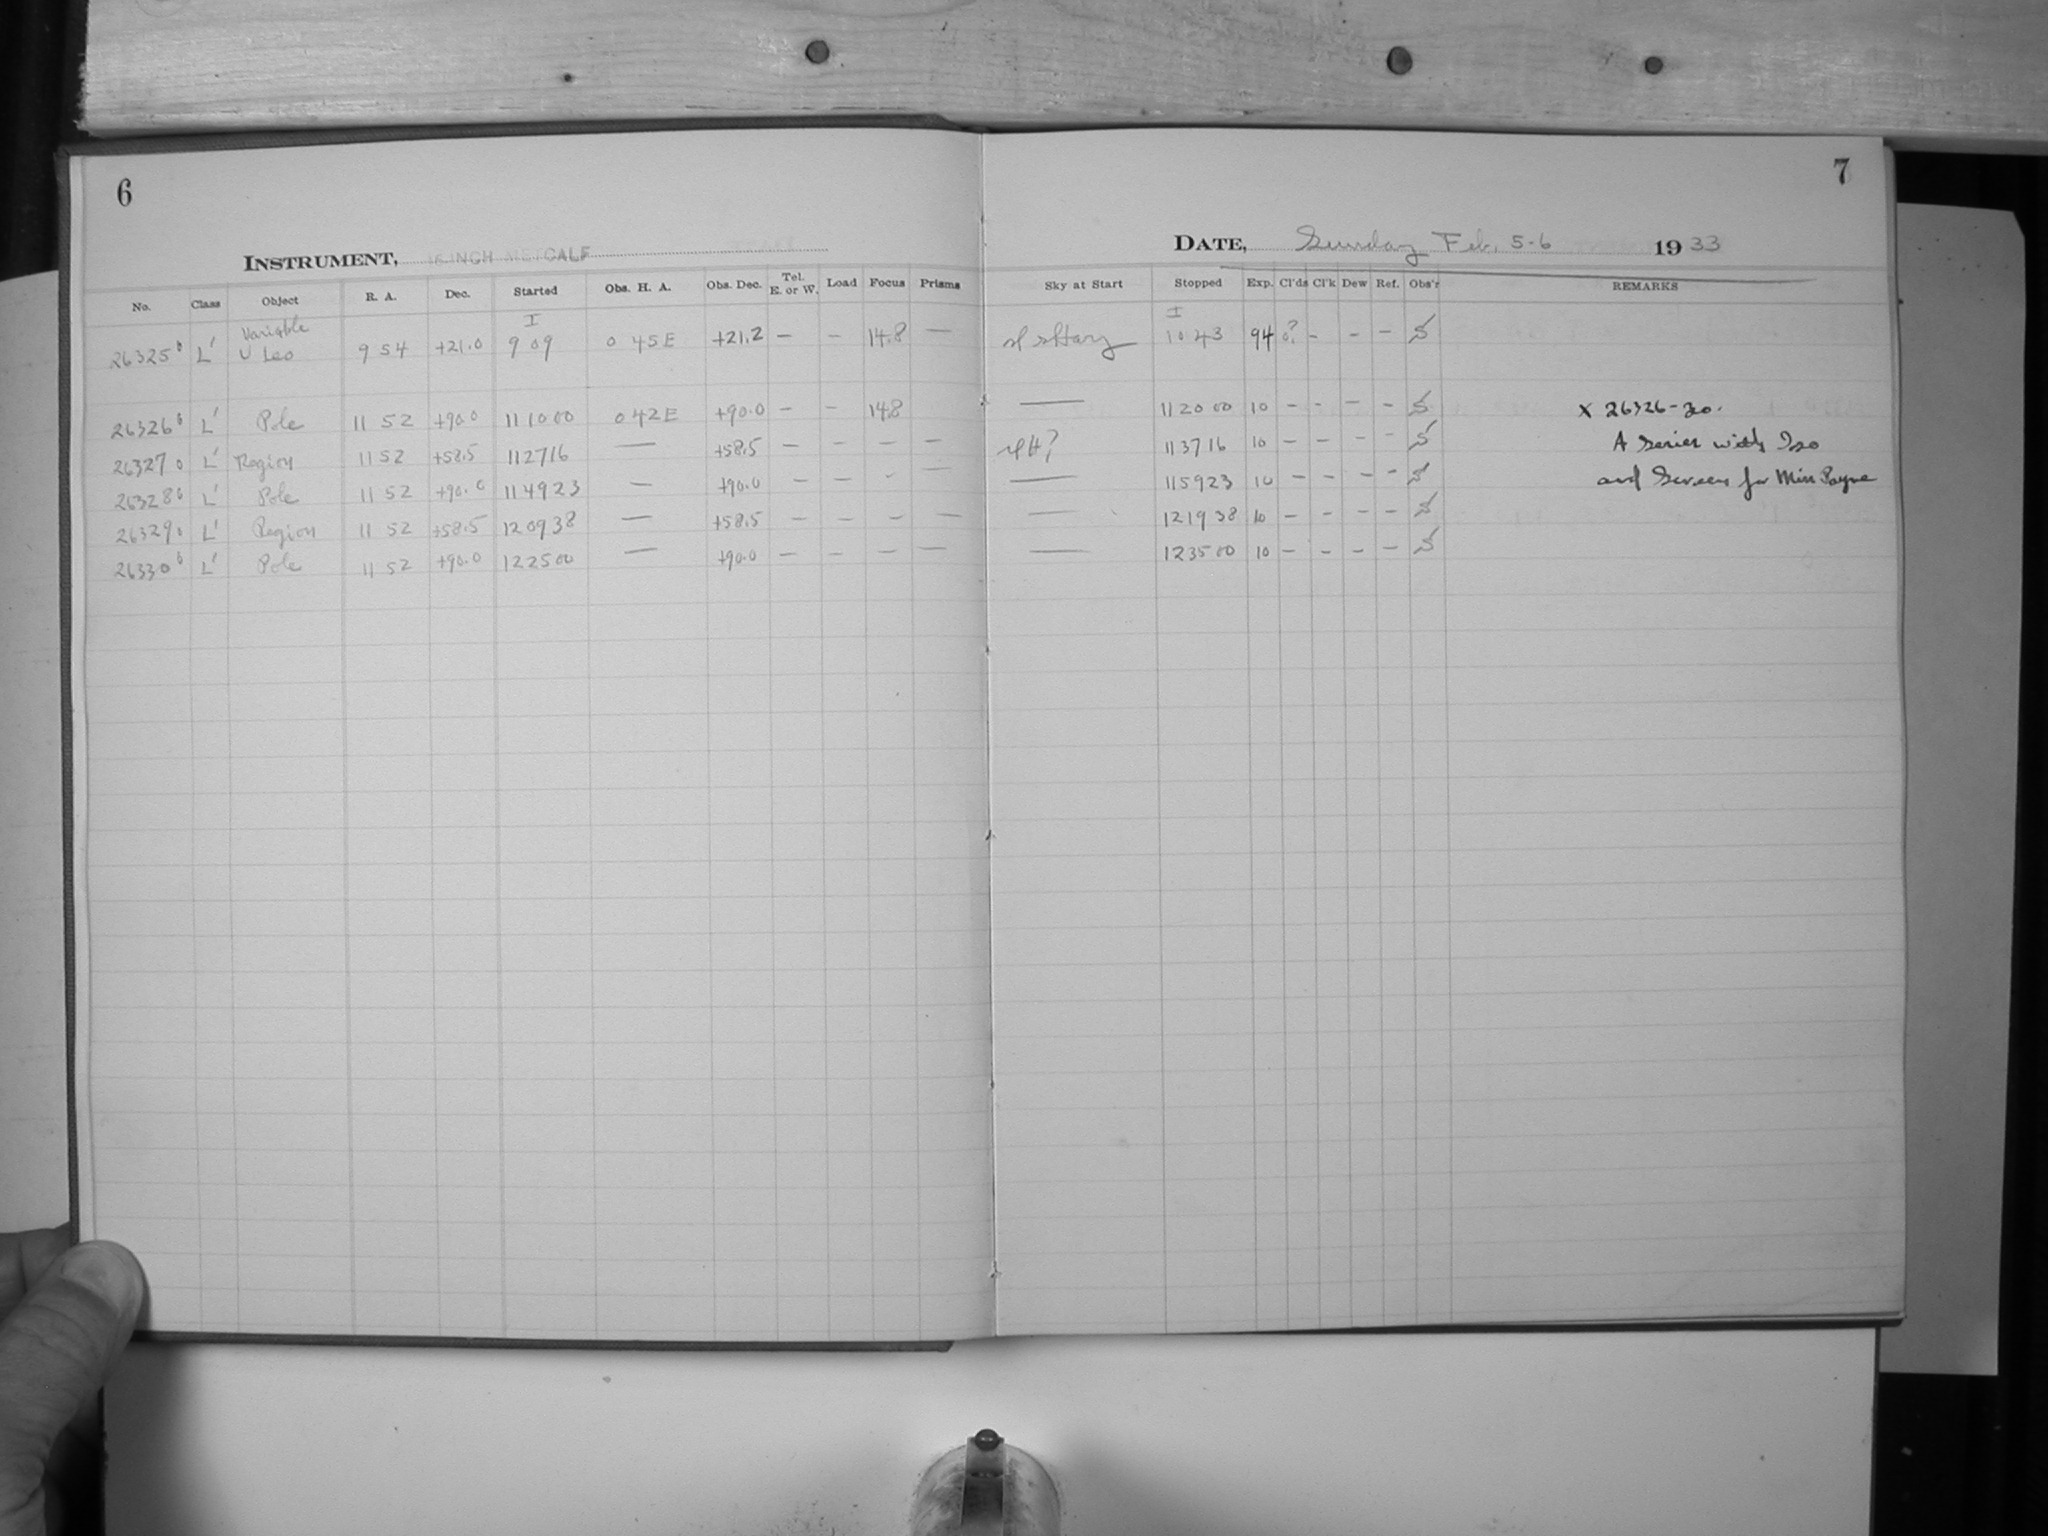 6
INSTRUMENT, 16 INCH METCALF
No. Class Object R. A. Dec. Started Obs. H. A. Obs. Dec. Tel. E. or W. Load Focus Prisms
I
Variable
26325 L' U Leo 9 54 +21.0 9 09 0 45 E +21.2 — — 14.8 —
26326 L' Pole 11 52 +90.0 11 10 00 0 42 E +90.0 — — 14.8
26327 L' Region 11 52 +58.5 11 27 16 — +58.5 — — — —
26328 L' Pole 11 52 +90.0 11 49 23 — +90.0 — — - —
26329 L' Region 11 52 +58.5 12 09 38 — +58.5 — — — —
26330 L' Pole 11 52 +90.0 12 25 00 — +90.0 — — — —
7
DATE, Sunday Feb. 5-6 1933
Sky at Start Stopped Exp. Cl'ds Cl'k Dew Ref. Obs'r REMARKS
I
sl Hazy 10 43 94 0? - - - S
— 11 20 00 10 - - - - S x 26326-30.
sl H? 11 37 16 10 - - - - S A Series with Iso
— 11 59 23 10 - - - - S and Screen for Miss Payne
— 12 19 38 10 - - - - S
— 12 35 00 10 - - - - S